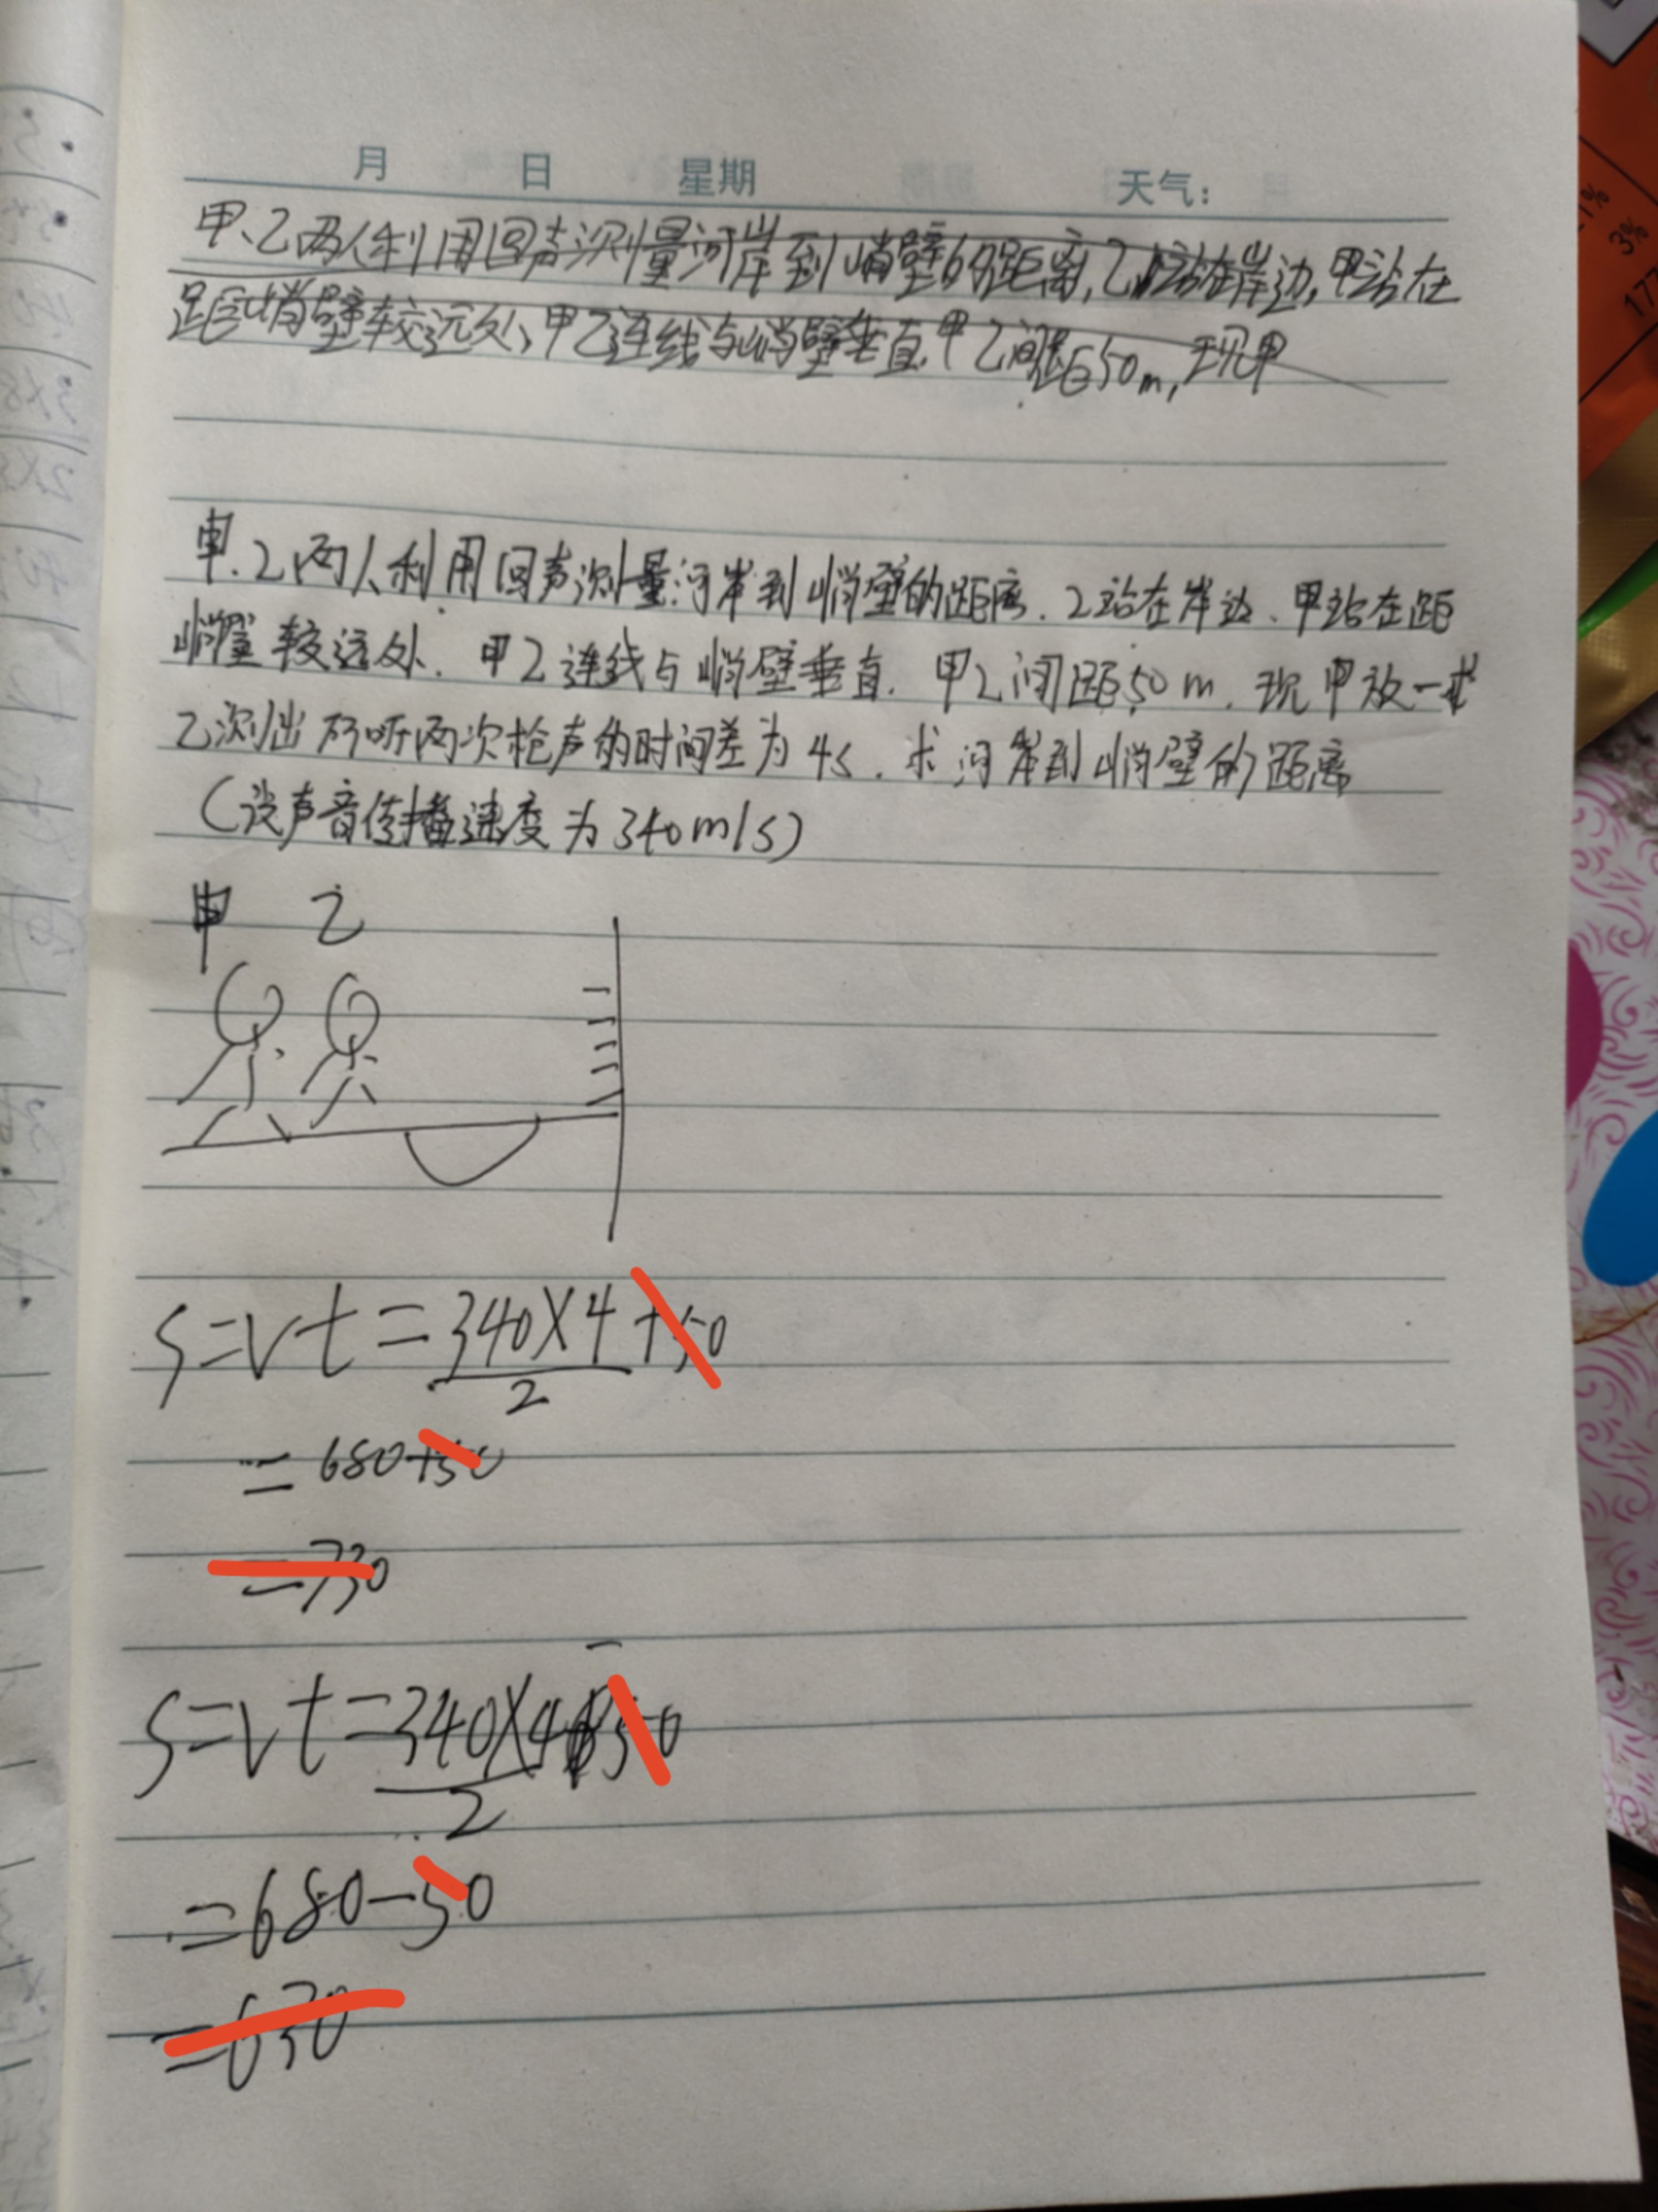 月 日 星期 天气:
甲、乙两人利用回声测量河岸到峭壁的距离,乙站在岸边,甲站在
距峭壁较远处,甲乙连线与峭壁垂直.甲乙间距50m,现甲
甲.乙两人利用回声测量河岸到峭壁的距离.乙站在岸边、甲站在距
峭壁较远处.甲乙连线与峭壁垂直.甲乙间距50m.现甲放一
乙测出所听两次枪声的时间差为4s.求河岸到峭壁的距离
(设声音传播速度为340m/s)
甲 乙
S=Vt=340×4+50
2
=680+50
=730
S=Vt=340×4 50
2
=680-50
=630